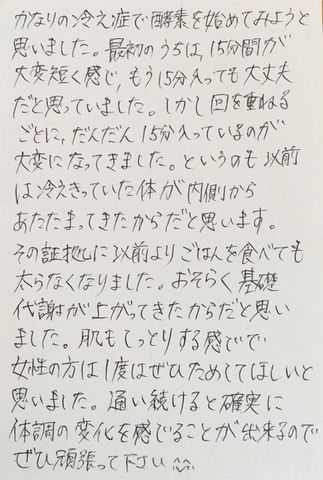 かなりの冷え症で酵素を始めてみようと
思いました。最初のうちは、15分間が
大変短く感じ、もう15分入っても大丈夫
だと思っていました。しかし回を重ねる
ごとに、だんだん15分入っているのが
大変になってきました。というのも以前
は冷えきっていた体が内側から
あたたまってきたからだと思います。
その証拠に以前よりごはんを食べても
太らなくなりました。おそらく基礎
代謝が上がってきたからだと思い
ました。肌もしっとりする感じで
女性の方は1度はぜひためしてほしいと
思いました。通い続けると確実に
体調の変化を感じることが出来るので
ぜひ頑張って下さい^^